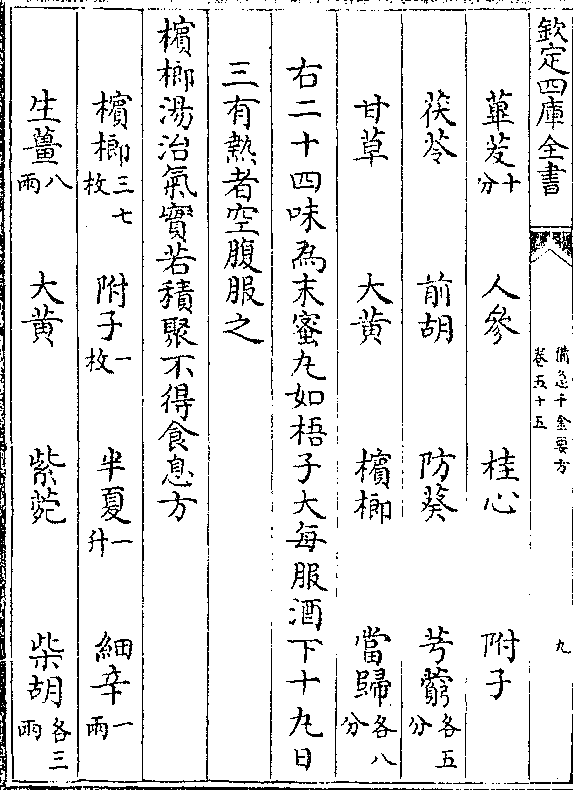 欽定四庫全書
備急千金要方
卷五十五
九
蓽茇十分 人參 桂心 附子
茯苓 前胡 防葵 芎藭各五分
甘草 大黄 檳榔 當歸各八分
右二十四味為末蜜丸如梧子大每服酒下十丸日
三有熱者空腹服之
檳榔湯治氣實若積聚不得食息方
檳榔三七枚 附子一枚 半夏一升 細辛一兩
生薑八兩 大黄 紫菀 柴胡各三兩